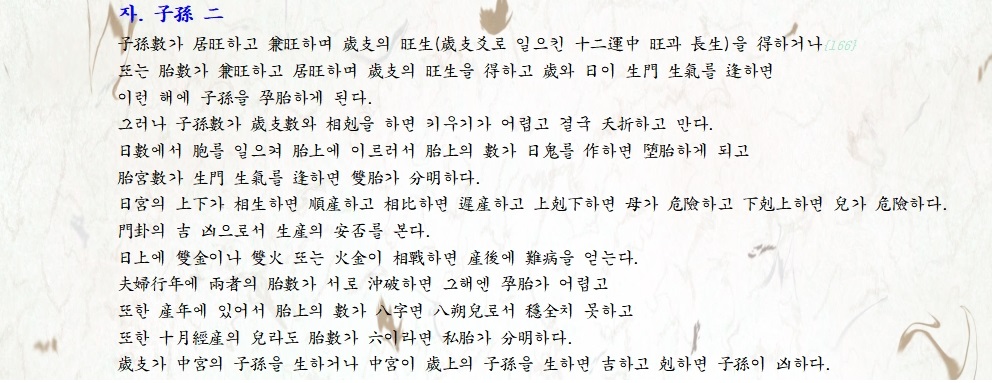 자. 子孫 二
子孫數가 居旺하고 兼旺하며 歲支의 旺生(歲支爻로 일으킨 十二運中 旺과 長生)을 得하거나{166}
또는 胎數가 兼旺하고 居旺하며 歲支의 旺生을 得하고 歲와 日이 生門 生氣를 逢하면
이런 해에 子孫을 孕胎하게 된다.
그러나 子孫數가 歲支數와 相剋을 하면 키우기가 어렵고 결국 夭折하고 만다.
日數에서 胞를 일으켜 胎上에 이르러서 胎上의 數가 日鬼를 作하면 墮胎하게 되고
胎宮數가 生門 生氣를 逢하면 雙胎가 分明하다.
日宮의 上下가 相生하면 順産하고 相比하면 遲産하고 上剋下하면 母가 危險하고 下剋上하면 兒가 危險하다.
門卦의 吉 凶으로서 生産의 安否를 본다.
日上에 雙金이나 雙火 또는 火金이 相戰하면 産後에 難病을 얻는다.
夫婦行年에 兩者의 胎數가 서로 沖破하면 그해엔 孕胎가 어렵고
또한 産年에 있어서 胎上의 數가 八字면 八朔兒로서 穩全치 못하고
또한 十月經産의 兒라도 胎數가 六이라면 私胎가 分明하다.
歲支가 中宮의 子孫을 生하거나 中宮이 歲上의 子孫을 生하면 吉하고 剋하면 子孫이 凶하다.